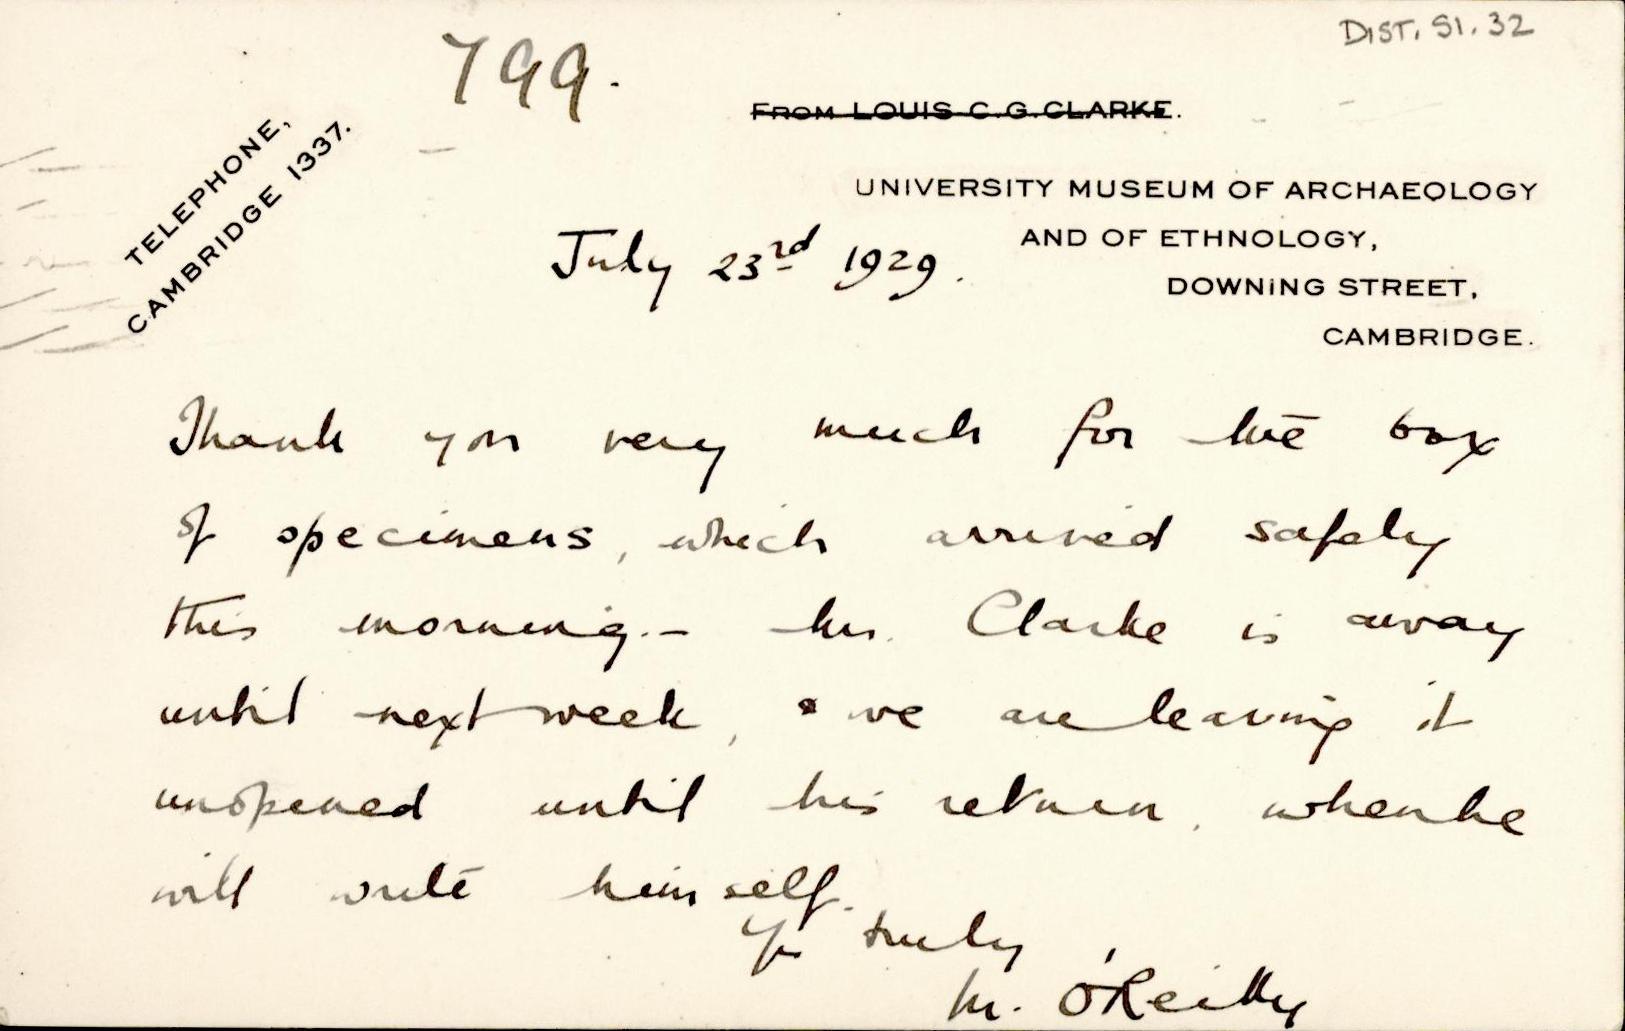 DIST. S1. 32
799.
FROM LOUIS C. G. CLARKE.
TELEPHONE,
CAMBRIDGE 1337.
UNIVERSITY MUSEUM OF ARCHAEOLOGY
AND OF ETHNOLOGY,
DOWNING STREET,
CAMBRIDGE.
July 23rd 1929.
Thank you very much for the box
of specimens, which arrived safely
this morning. - Mr. Clarke is away
until next week, & we are leaving it
unopened until his return, when he
will write himself.
Yrs truly
M. O'Reilly